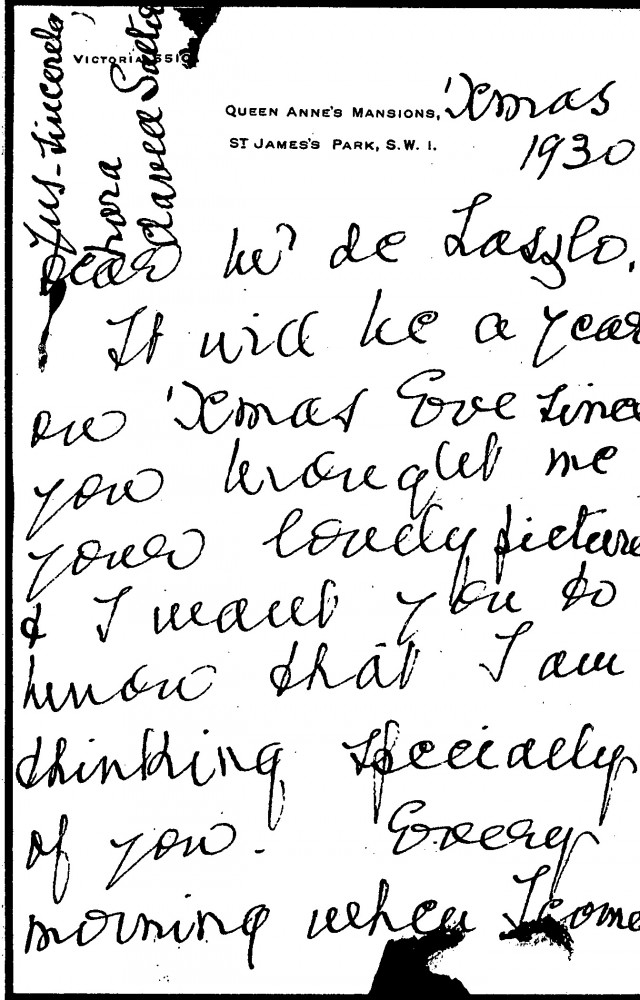 VICTORIA
QUEEN ANNE'S MANSIONS,
ST JAMES'S PARK, S.W. 1.
'Xmas
1930
Dear Mr de Laszlo,
It will be a year
on 'Xmas Eve since
you brought me
your lovely picture
& I want you to
know that I am
thinking specially
of you. Every
morning when I come
Yrs. sincerely